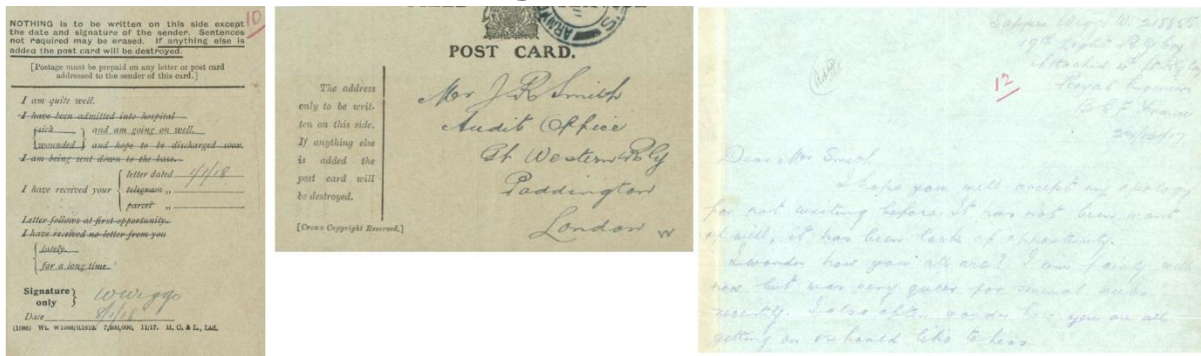 10
NOTHING is to be written on this side except
the date and signature of the sender. Sentences
not required may be erased. If anything else is
added the post card will be destroyed.
[Postage must be prepaid on any letter or post card
addressed to the sender of this card.]
I am quite well.
I have been admitted into hospital
sick and am going on well.
wounded and hope to be discharged soon.
I am being sent down to the base.
letter dated 1/1/18
I have received your telegram ,,
parcel ,,
Letter follows at first opportunity.
I have received no letter from you
lately.
for a long time.
Signature
only
W Wiggs
Date 8/1/18
11/17. H. C. & L., Ltd.
POST CARD.
The address
only to be writ-
ten on this side.
If anything else
is added the
post card will
be destroyed.
[Crown Copyright Reserved.]
Mr J R Smith
Audit Office
Gt Western Rly
Paddington
London W
Sapper Wiggs W.
19th Light Rly
Attached
Royal Engineers
B E F France
12
Dear Mr Smith
I hope you will accept my apology
for not writing before. It has not been want
of will, it has been lack of opportunity.
I wonder how you all are? I am fairly well
now but was very queer for several weeks
recently. I also often wonder how you are all
getting on & should like to hear